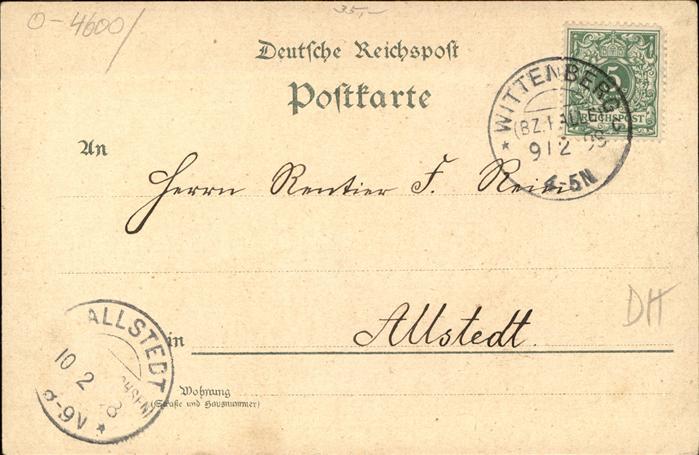 O-4600/
35,-
Deutsche Reichspost
Postkarte
5
REICHSPOST
* WITTENBERG
(BZ. HALLE)
9 12 98
4-5N
An
Herrn Rentier F.
in
Allstedt.
DH
Wohnung
(Straße und Hausnummer)
ALLSTEDT
10 2
8-9V *